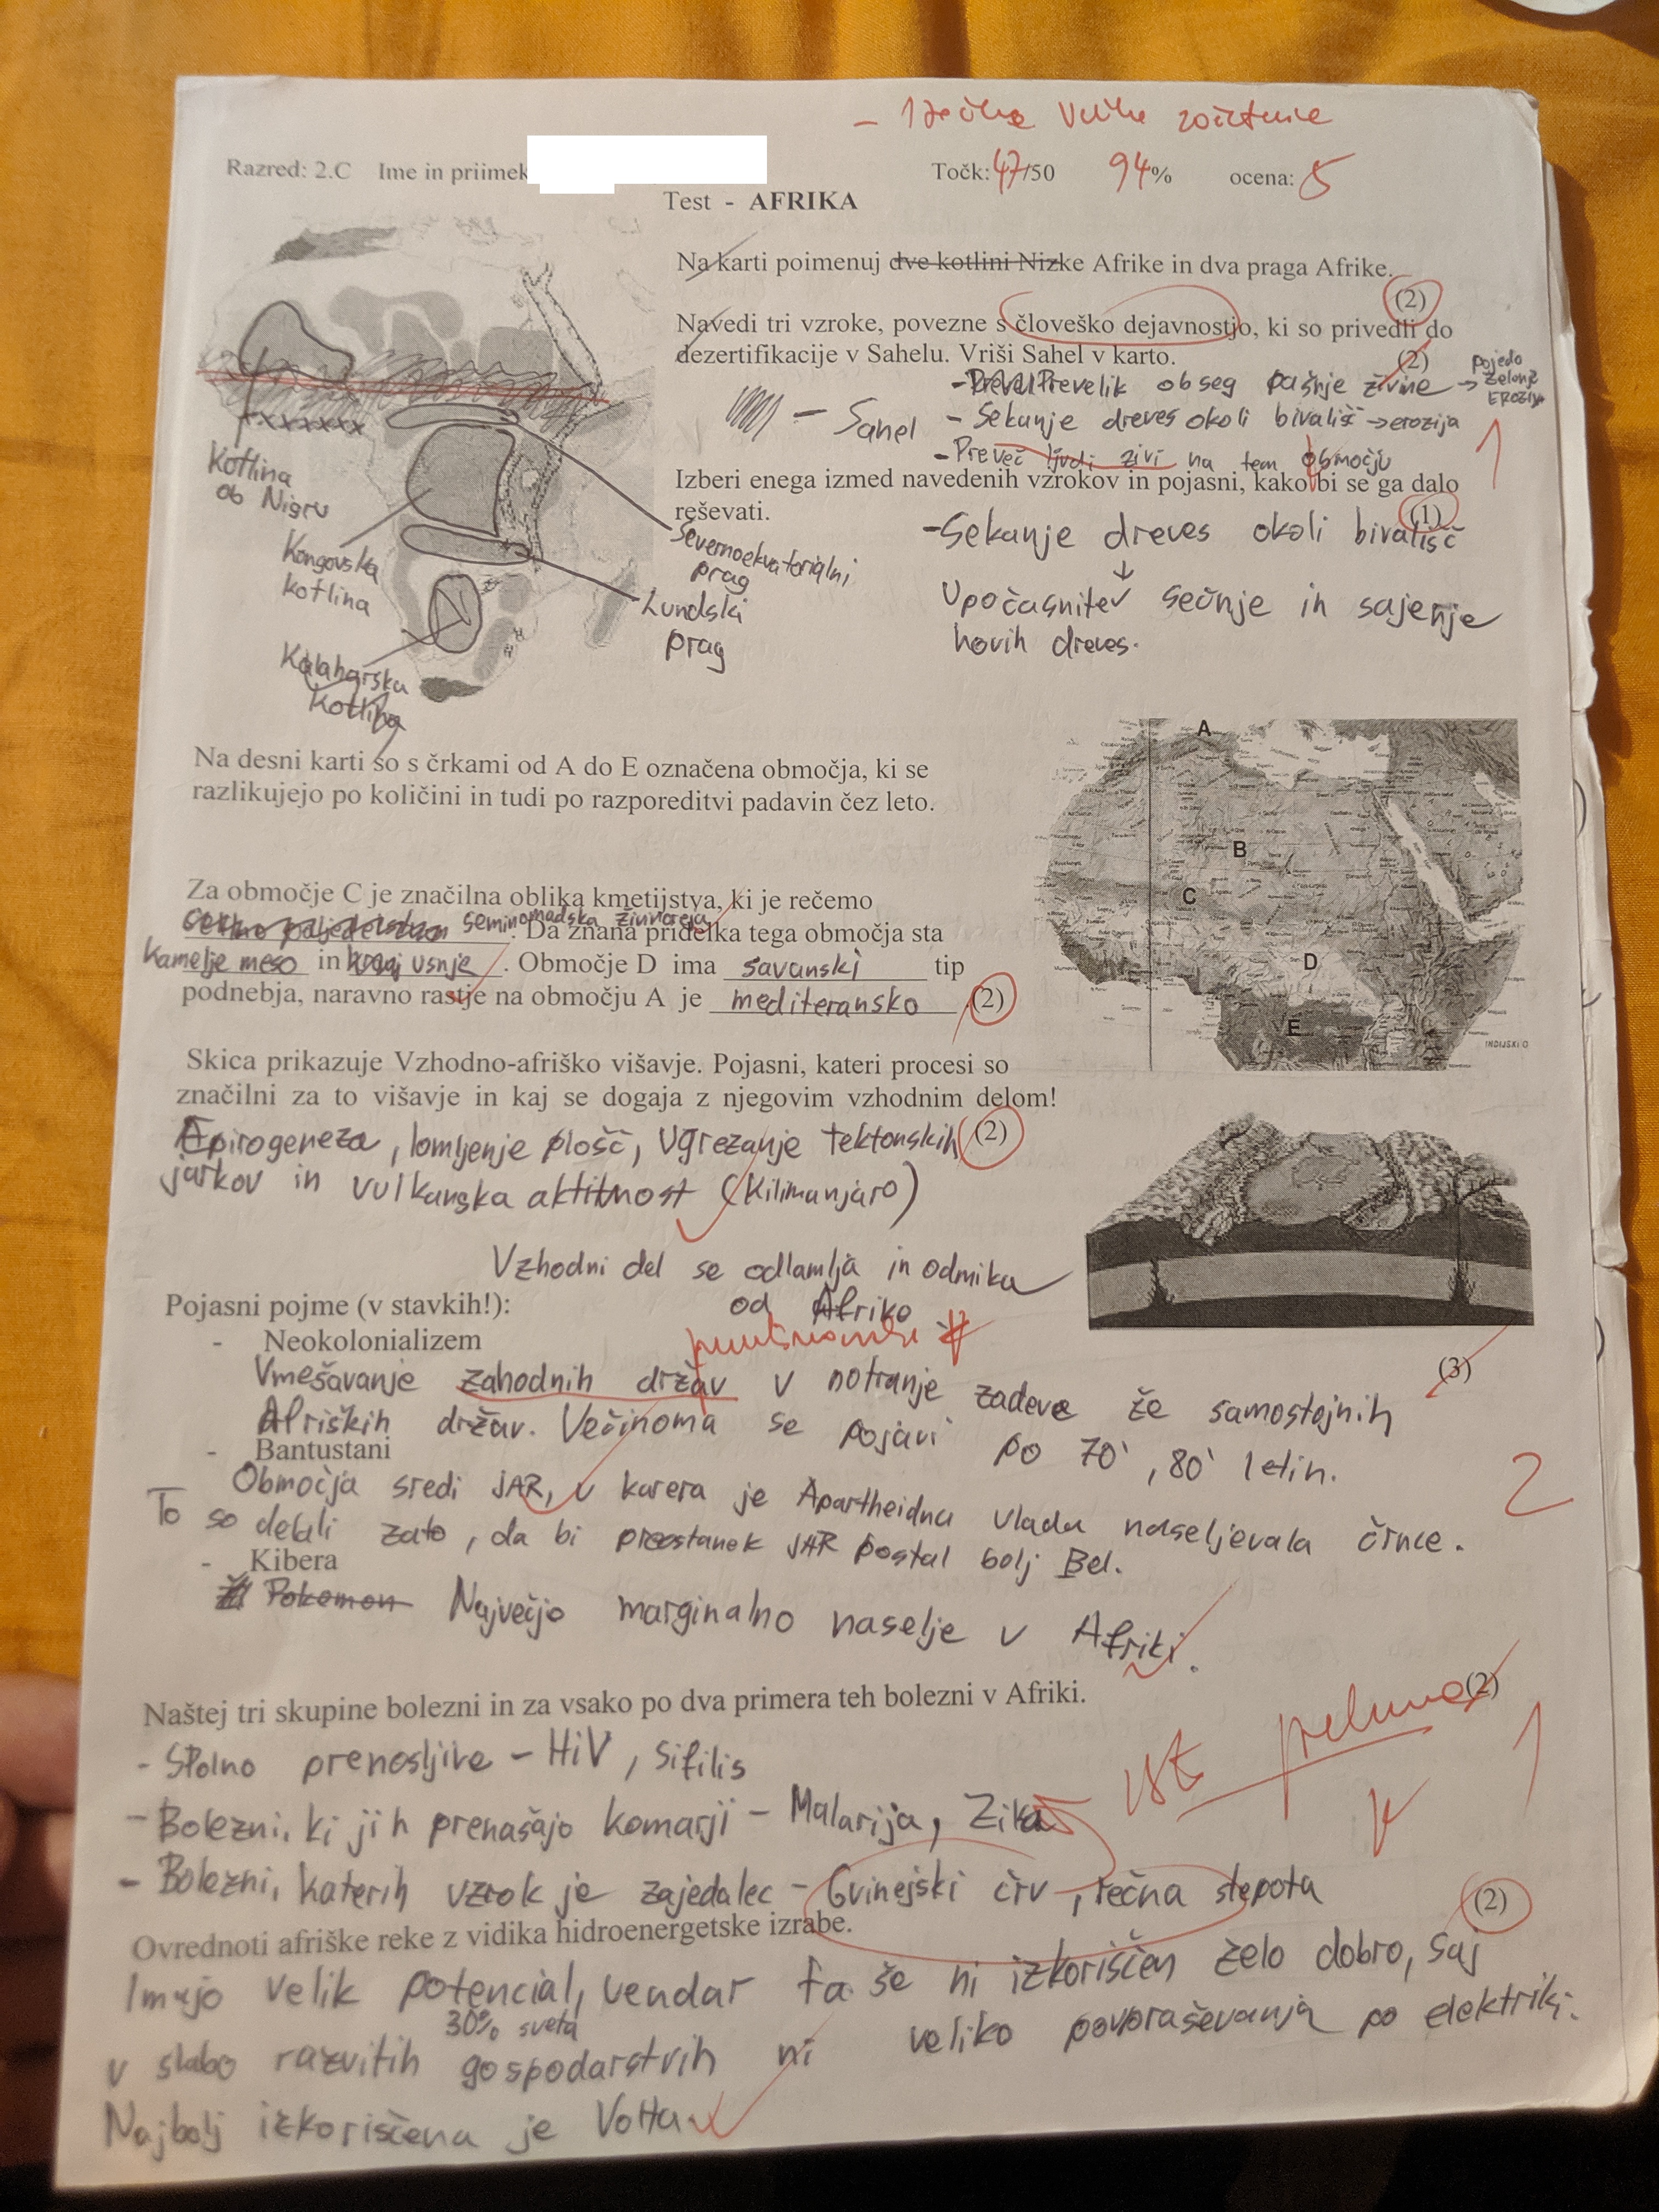 - 1 točka Velike začetnice
Razred: 2.C Ime in priimek
Točk: 47/50 94% ocena: 5
Test - AFRIKA
Na karti poimenuj dve kotlini Nizke Afrike in dva praga Afrike.
(2)
Navedi tri vzroke, povezne s človeško dejavnostjo, ki so privedli do
dezertifikacije v Sahelu. Vriši Sahel v karto.
(2)
- Prevelik obseg pašnje živine → pojedo
zelenje
EROZIJA
- Sahel
- Sekanje dreves okoli bivališč → erozija
- Preveč ljudi živi na tem območju
1
Izberi enega izmed navedenih vzrokov in pojasni, kako bi se ga dalo
reševati.
(1)
- Sekanje dreves okoli bivališč
↓
Upočasnitev sečnje in sajenje
novih dreves.
Kotlina
ob Nigru
Kongovska
kotlina
Kalaharska
Kotlina
Severnoekvatorialni
prag
Lundski
prag
Na desni karti so s črkami od A do E označena območja, ki se
razlikujejo po količini in tudi po razporeditvi padavin čez leto.
A
B
C
D
E
INDIJSKI O
Za območje C je značilna oblika kmetijstva, ki je rečemo
seminomadska živinoreja. Da znana pridelka tega območja sta
Kamelje meso in usnje. Območje D ima savanski tip
podnebja, naravno rastje na območju A je mediteransko. (2)
Skica prikazuje Vzhodno-afriško višavje. Pojasni, kateri procesi so
značilni za to višavje in kaj se dogaja z njegovim vzhodnim delom!
(2)
Epirogeneza, lomljenje plošč, Ugrezanje tektonskih
jarkov in vulkanska aktivnost (Kilimanjaro)
Vzhodni del se odlamlja in odmika
od Afrike
Pojasni pojme (v stavkih!):
- Neokolonializem
(3)
Vmešavanje zahodnih držav v notranje zadeve že samostojnih
Afriških držav. Večinoma se pojavi po 70', 80' letih.
- Bantustani
2
Območja sredi JAR, v katera je Apartheidna vlada naseljevala črnce.
To so delali zato, da bi preostanek JAR postal bolj Bel.
- Kibera
Pokemon Največjo marginalno naselje v Afriki.
Naštej tri skupine bolezni in za vsako po dva primera teh bolezni v Afriki.
(2)
- Spolno prenosljive - HiV, Sifilis
- Bolezni, ki jih prenašajo komarji - Malarija, Zika
1
- Bolezni, katerih vzrok je zajedalec - Gvinejski črv, rečna slepota
Ovrednoti afriške reke z vidika hidroenergetske izrabe.
(2)
Imajo velik potencial, vendar ta še ni izkoriščen zelo dobro, saj
30% sveta
v slabo razvitih gospodarstvih ni veliko povpraševanja po elektriki.
Najbolj izkoriščena je Volta